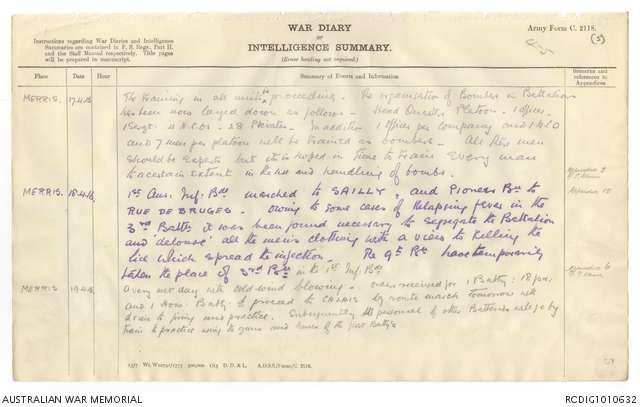 WAR DIARY
or
INTELLIGENCE SUMMARY.
(Erase heading not required)
Army Form C. 2118.
(5)
Instructions regarding War Diaries and Intelligence
Summaries are contained in F. S. Regs., Part II.
and the Staff Manual respectively. Title pages
will be prepared in manuscript.
Place Date Hour Summary of Events and Information Remarks and references to Appendices
MERRIS. 17.4.16 The training in all units is proceeding. The organisation of Bombers in Battalions
has been now layed down as follows - Head Quarters Platoon. 1 Officer.
1 Sergt: 4 N.C.Os. 28 Privates. In addition 1 Officer per company and 1 NCO
and 7 men per platoon will be trained as bombers. All these men
should be experts but it is hoped in time to train every man
to a certain extent in the use and handling of bombs.
MERRIS. 18.4.16 1st Aus. Inf. Bde marched to SAILLY, and Pioneer Bn to
RUE DE BRUGES. Owing to some cases of Relapsing fever in the
3rd Battn it was been found necessary to segregate the Battalion
and delouse all the men's clothing with a view to killing the
lice which spread the infection. The 9th Bn have temporarily
taken the place of 3rd Battn in the 1st Inf. Bde.
MERRIS 19.4.16 A very wet day with cold wind blowing. Orders received for 1 Batty: 18 pdrs
and 1 How: Batty: to proceed to CALAIS by route march tomorrow
Subsequently the personnel of other Batteries will go by
train to practice using the guns and horses of the first Batty's
Appendix 10
Appendix 6
1577 Wt. W10791/1773 500,000 1/15 D. D. & L. A.D.S.S./Forms/C. 2118.
AUSTRALIAN WAR MEMORIAL
RCDIG1010632